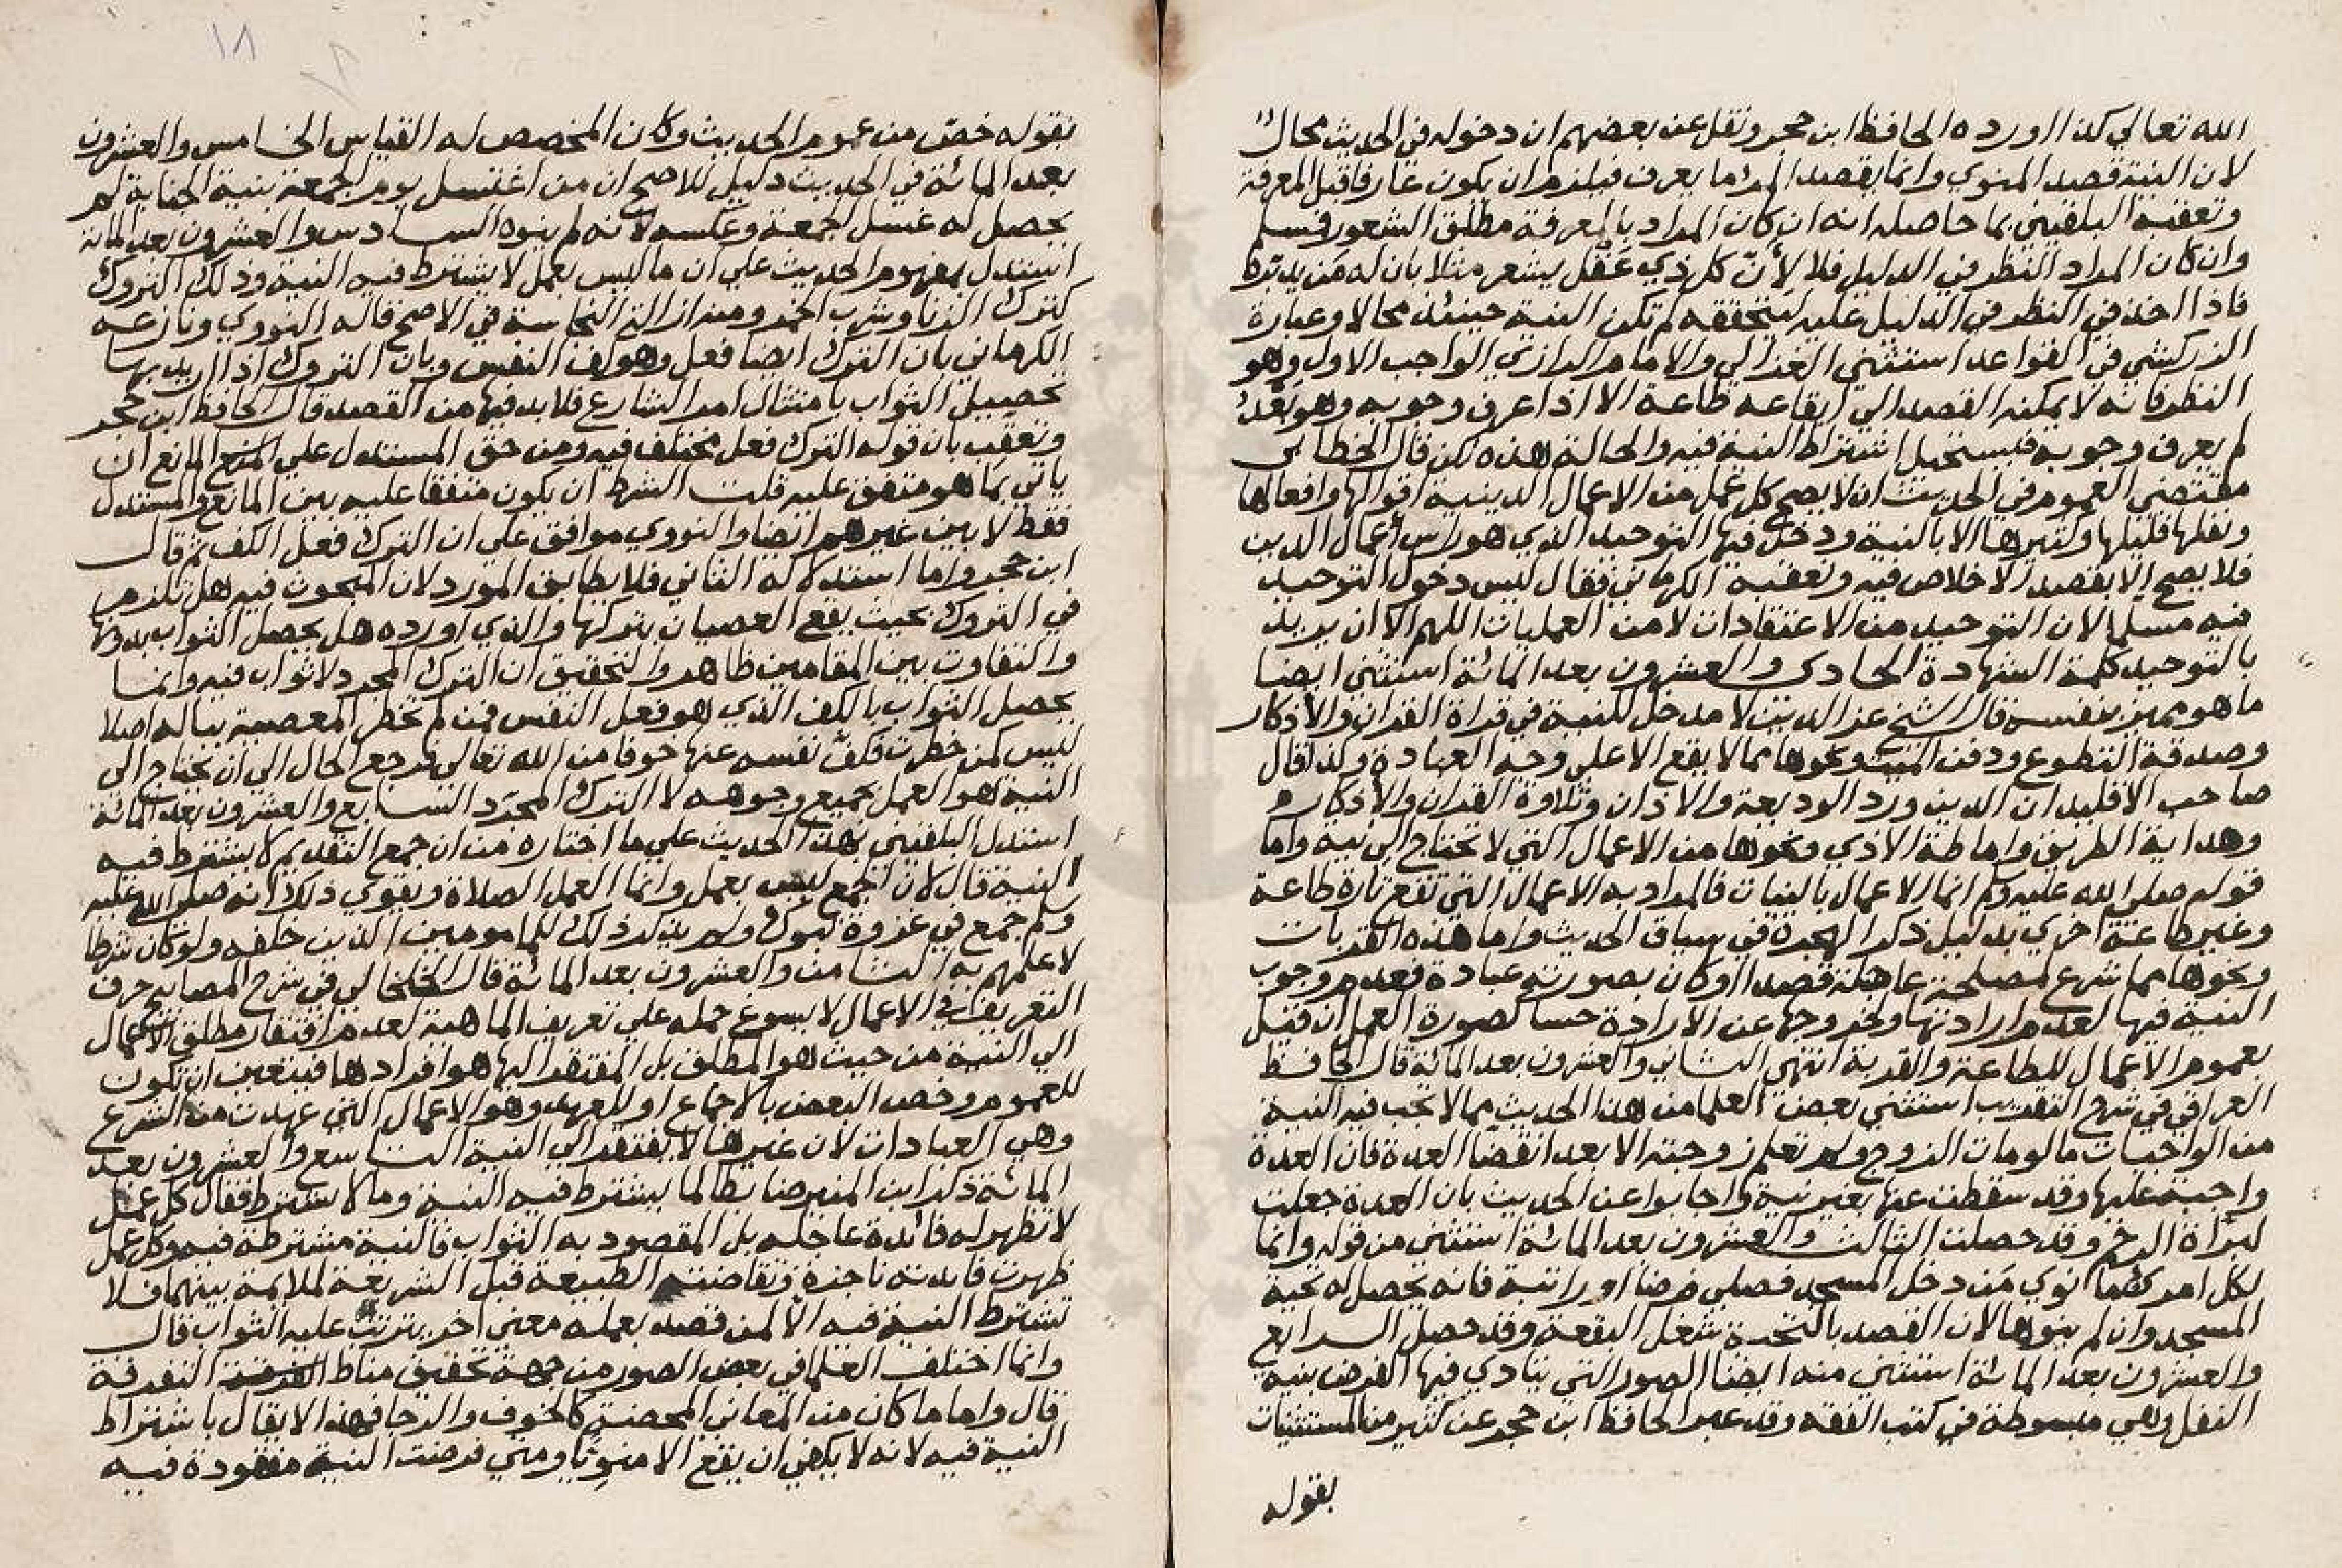 الله تعالي كذا اورده الحافظ ابن حجر ونقل عن بعضهم ان دخوله في الحديث محال
لان النية قصد المنوي وانما يقصد المرء ما يعرف فيلزم ان يكون عارفا قبل المعرفة
وتعقبه البلقيني بما حاصله انه ان كان المراد بالمعرفة مطلق الشعور فمسلم
وان كان المراد النظر في الدليل فلا لأن كل ذي عقل يشعر مثلا بان له من يدبره
فاذا اخذ في النظر في الدليل عليه ليتحققه لم تكن النية حينئذ محالا وعبارة
الزركشي في القواعد استثني الغزالي والامام الرازي الواجب الاول وهو
النظر فانه لا يمكنه القصد الي ايقاعه طاعة الا اذا عرف وجوبه وهو بعد
لم يعرف وجوبه فيستحيل اشتراط النية فيه والحالة هذه لكن قال الخطابي
مقتضي العموم في الحديث ان لا يصح كل عمل من الاعمال الدينية اقوالها وافعالها
ونفلها قليلها وكثيرها الا بالنية ودخل فيها التوحيد الذي هو راس أعمال الدين
فلا يصح الا بقصد الاخلاص فيه وتعقبه الكرماني فقال ليس دخول التوحيد
فيه مسلما لان التوحيد من الاعتقادات لا من العمليات اللهم الا ان يريد
بالتوحيد كلمة الشهادة الحادي والعشرون بعد المائة استثني ايضا
ما هو مميز بنفسه قال الشيخ عز الدين لا مدخل للنية في قراة القران والاذكار
وصدقة التطوع ودفن الميت ونحوها مما لا يقع الا علي وجه العبادة وكذا قال
صاحب الاقليد ان الدين ورد الوديعة والاذان وتلاوة القران والاذكار
وهداية الطريق واماطة الاذي ونحوها من الاعمال التي لا تحتاج الي نية واما
قوله صلي الله عليه وسلم انما الاعمال بالنيات فالمراد به الاعمال التي تقع تارة طاعة
وغير طاعة اخري بدليل ذكر الهجرة في سياق الحديث واما هذه القربات
ونحوها مما شرع لمصلحة عاجلة قصدا او كان بصورته عبادة فعدم وجوب
النية فيها لعدم ارادتها ولخروجها عن الارادة حسا لصورة العمل ان قيل
بعموم الاعمال للطاعة والقربة انتهي الثاني والعشرون بعد المائة قال الحافظ
العراقي في شرح التقريب استثني بعض العلما من هذا الحديث مما لا تجب فيه النية
من الواجبات ما لو مات الزوج ولم تعلم زوجته الا بعد انقضا العدة فان العدة
واجبة عليها وقد سقطت عنها بغير نية واجابوا عن الحديث بان العدة جعلت
لبراة الرحم وقد حصلت الثالث والعشرون بعد المائة استثني من قوله وانما
لكل امرئ ما نوي من دخل المسجد فصلي فرضا او راتبة فانه يحصل له تحية
المسجد وان لم ينوها لان القصد بالتحية شغل البقعة وقد حصل الرابع
والعشرون بعد المائة استثني منه ايضا الصور التي يتادي فيها الفرض بنية
النفل وهي مبسوطة في كتب الفقه وقد عبر الحافظ ابن حجر عن كثير من المستثنيات
بقوله
بقوله خص من عموم الحديث وكان المخصص له القياس الخامس والعشرون
بعد المائة في الحديث دليل للاصح ان من اغتسل يوم الجمعة بنية الجنابة لم
يحصل له غسل الجمعة وعكسه لانه لم ينوه السادس والعشرون بعد المائة
استدل بمفهوم الحديث علي ان ما ليس بعمل لا يشترط فيه النية وذلك التروك
كترك الزنا وشرب الخمر ومنه ازالة النجاسة في الاصح قاله النووي ونازعه
الكرماني بان الترك ايضا فعل وهو كف النفس وبان التروك اذا اريد بها
تحصيل الثواب بامتثال امر الشارع فلا بد فيها من القصد قال الحافظ ابن حجر
وتعقب بان قوله الترك فعل مختلف فيه ومن حق المستدل علي المنع المانع ان
ياتي بما هو متفق عليه قلت الشرط ان يكون متفقا عليه بين المانع والمستدل
فقط لا بين غيرهم ايضا والنووي موافق علي ان الترك فعل الكف ثم قال
ابن حجر واما استدلاله الثاني فلا يطابق المورد لان المبحوث فيه هل تلزم
في التروك بحيث يقع العصيان بتركها والذي اورده هل يحصل الثواب بدونها
والتفاوت بين المقامين ظاهر والتحقيق ان الترك المجرد لا ثواب فيه وانما
يحصل الثواب بالكف الذي هو فعل النفس فمن لم تخطر المعصية بباله اصلا
ليس كمن خطرت فكف نفسه عنها خوفا من الله تعالي فرجع الحال الي ان تحتاج الي
النية هو العمل بجميع وجوهه لا الترك المجرد السابع والعشرون بعد المائة
استدل البلقيني بهذا الحديث علي ما اختاره من ان جمع التقديم لا يشترط فيه
النية قال لان الجمع ليس بعمل وانما العمل الصلاة ويقوي ذلك انه صلي الله عليه
وسلم جمع في غزوة تبوك ولم يذكر ذلك للمامومين الذين خلفه ولو كان شرطا
لاعلمهم به الثامن والعشرون بعد المائة قال الخلخالي في شرح المصابيح حرف
التعريف في الاعمال لا يسوغ حمله علي تعريف الماهية لعدم افتقار مطلق الاعمال
الي النية من حيث هو المطلق بل المفتقر اليها هو افرادها فيتعين ان تكون
للعموم وخص البعض بالاجماع او للعهد وهو الاعمال التي عهدت من الشرع
وهي العبادات لان غيرها لا يفتقر الي النية التاسع والعشرون بعد
المائة ذكر ابن المنير ضابطا لما يشترط فيه النية وما لا يشترط فقال كل عمل
لا تظهر له فائدة عاجله بل المقصود به الثواب فالنية مشترطة فيه وكل عمل
ظهرت فائدته ناجزة وتقاضته الطبيعة قبل الشريعة لملايمة بينهما فلا
تشترط النية فيه الا لمن قصد بعمله معني اخر يترتب عليه الثواب قال
وانما اختلف العلما في بعض الصور من جهة تحقيق مناط التفرقة
قال واما ما كان من المعاني المحضة كالخوف والرجا فهذا لا يقال باشتراط
النية فيه لانه لا يكفي ان يقع الا منويا ومتي فرضت النية مفقودة فيه